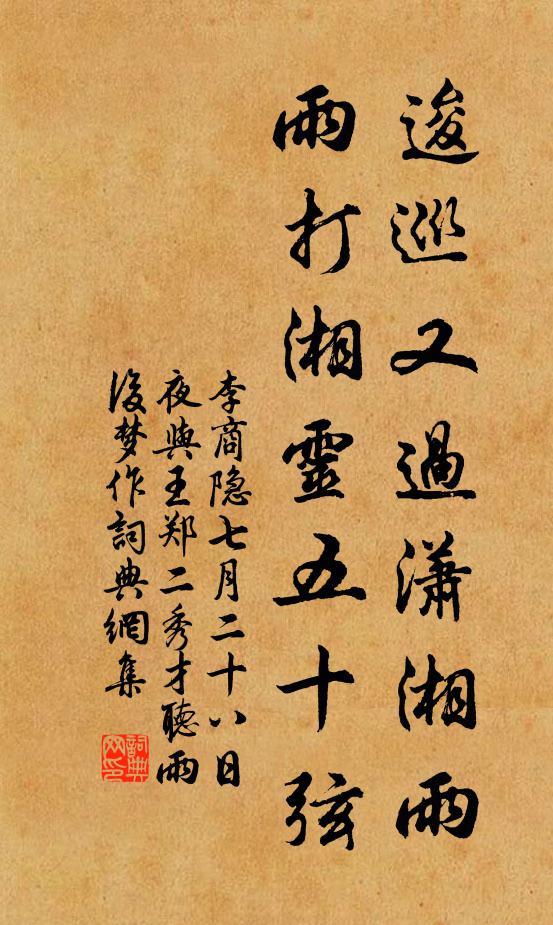 逡巡又過瀟湘雨
雨打湘靈五十弦
李商隐七月二十八日
夜與王郑二秀才聽雨
後梦作詞典網集
詞典
网印